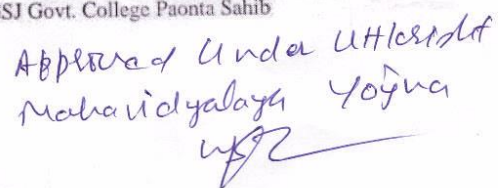 SJ Govt. College Paonta Sahib
Approved Under Uttkrisht
Mahavidyalaya Yojna